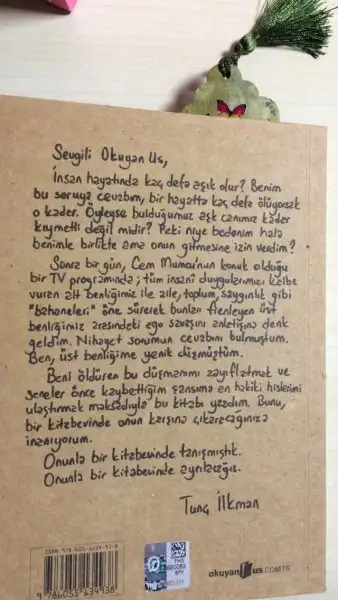 Sevgili Okuyan Us,
İnsan hayatında kaç defa aşık olur? Benim
bu soruya cevabım, bir hayatta kaç defa ölüyorsak
o kadar. Öyleyse bulduğumuz aşk canımız kadar
kıymetli değil midir? Peki niye bedenim hala
benimle birlikte ama onun gitmesine izin verdim?
Sonra bir gün, Cem Mumcu'nun konuk olduğu
bir TV programında; tüm insani duygularımızı kalbe
vuran alt benliğimiz ile aile, toplum, saygınlık gibi
"bahaneleri" öne sürerek bunları frenleyen üst
benliğimiz arasındaki ego savaşını anlatışına denk
geldim. Nihayet sorumun cevabını bulmuştum.
Ben, üst benliğime yenik düşmüştüm.
Beni öldüren bu düşmanımı zayıflatmak ve
seneler önce kaybettiğim şansıma en hakiki hislerimi
ulaştırmak maksadıyla bu kitabı yazdım. Bunu,
bir kitabevinde onun karşına çıkaracağınıza
inanıyorum.
Onunla bir kitabevinde tanışmıştık.
Onunla bir kitabevinde ayrılacağız.
Tunç İlkman
okuyan us.COM.TR